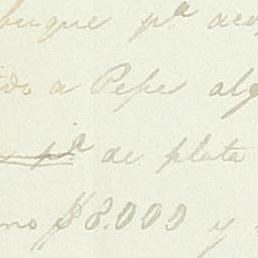 buque pª aco
do a Pepe alg
pª de plete
no $8.000 y